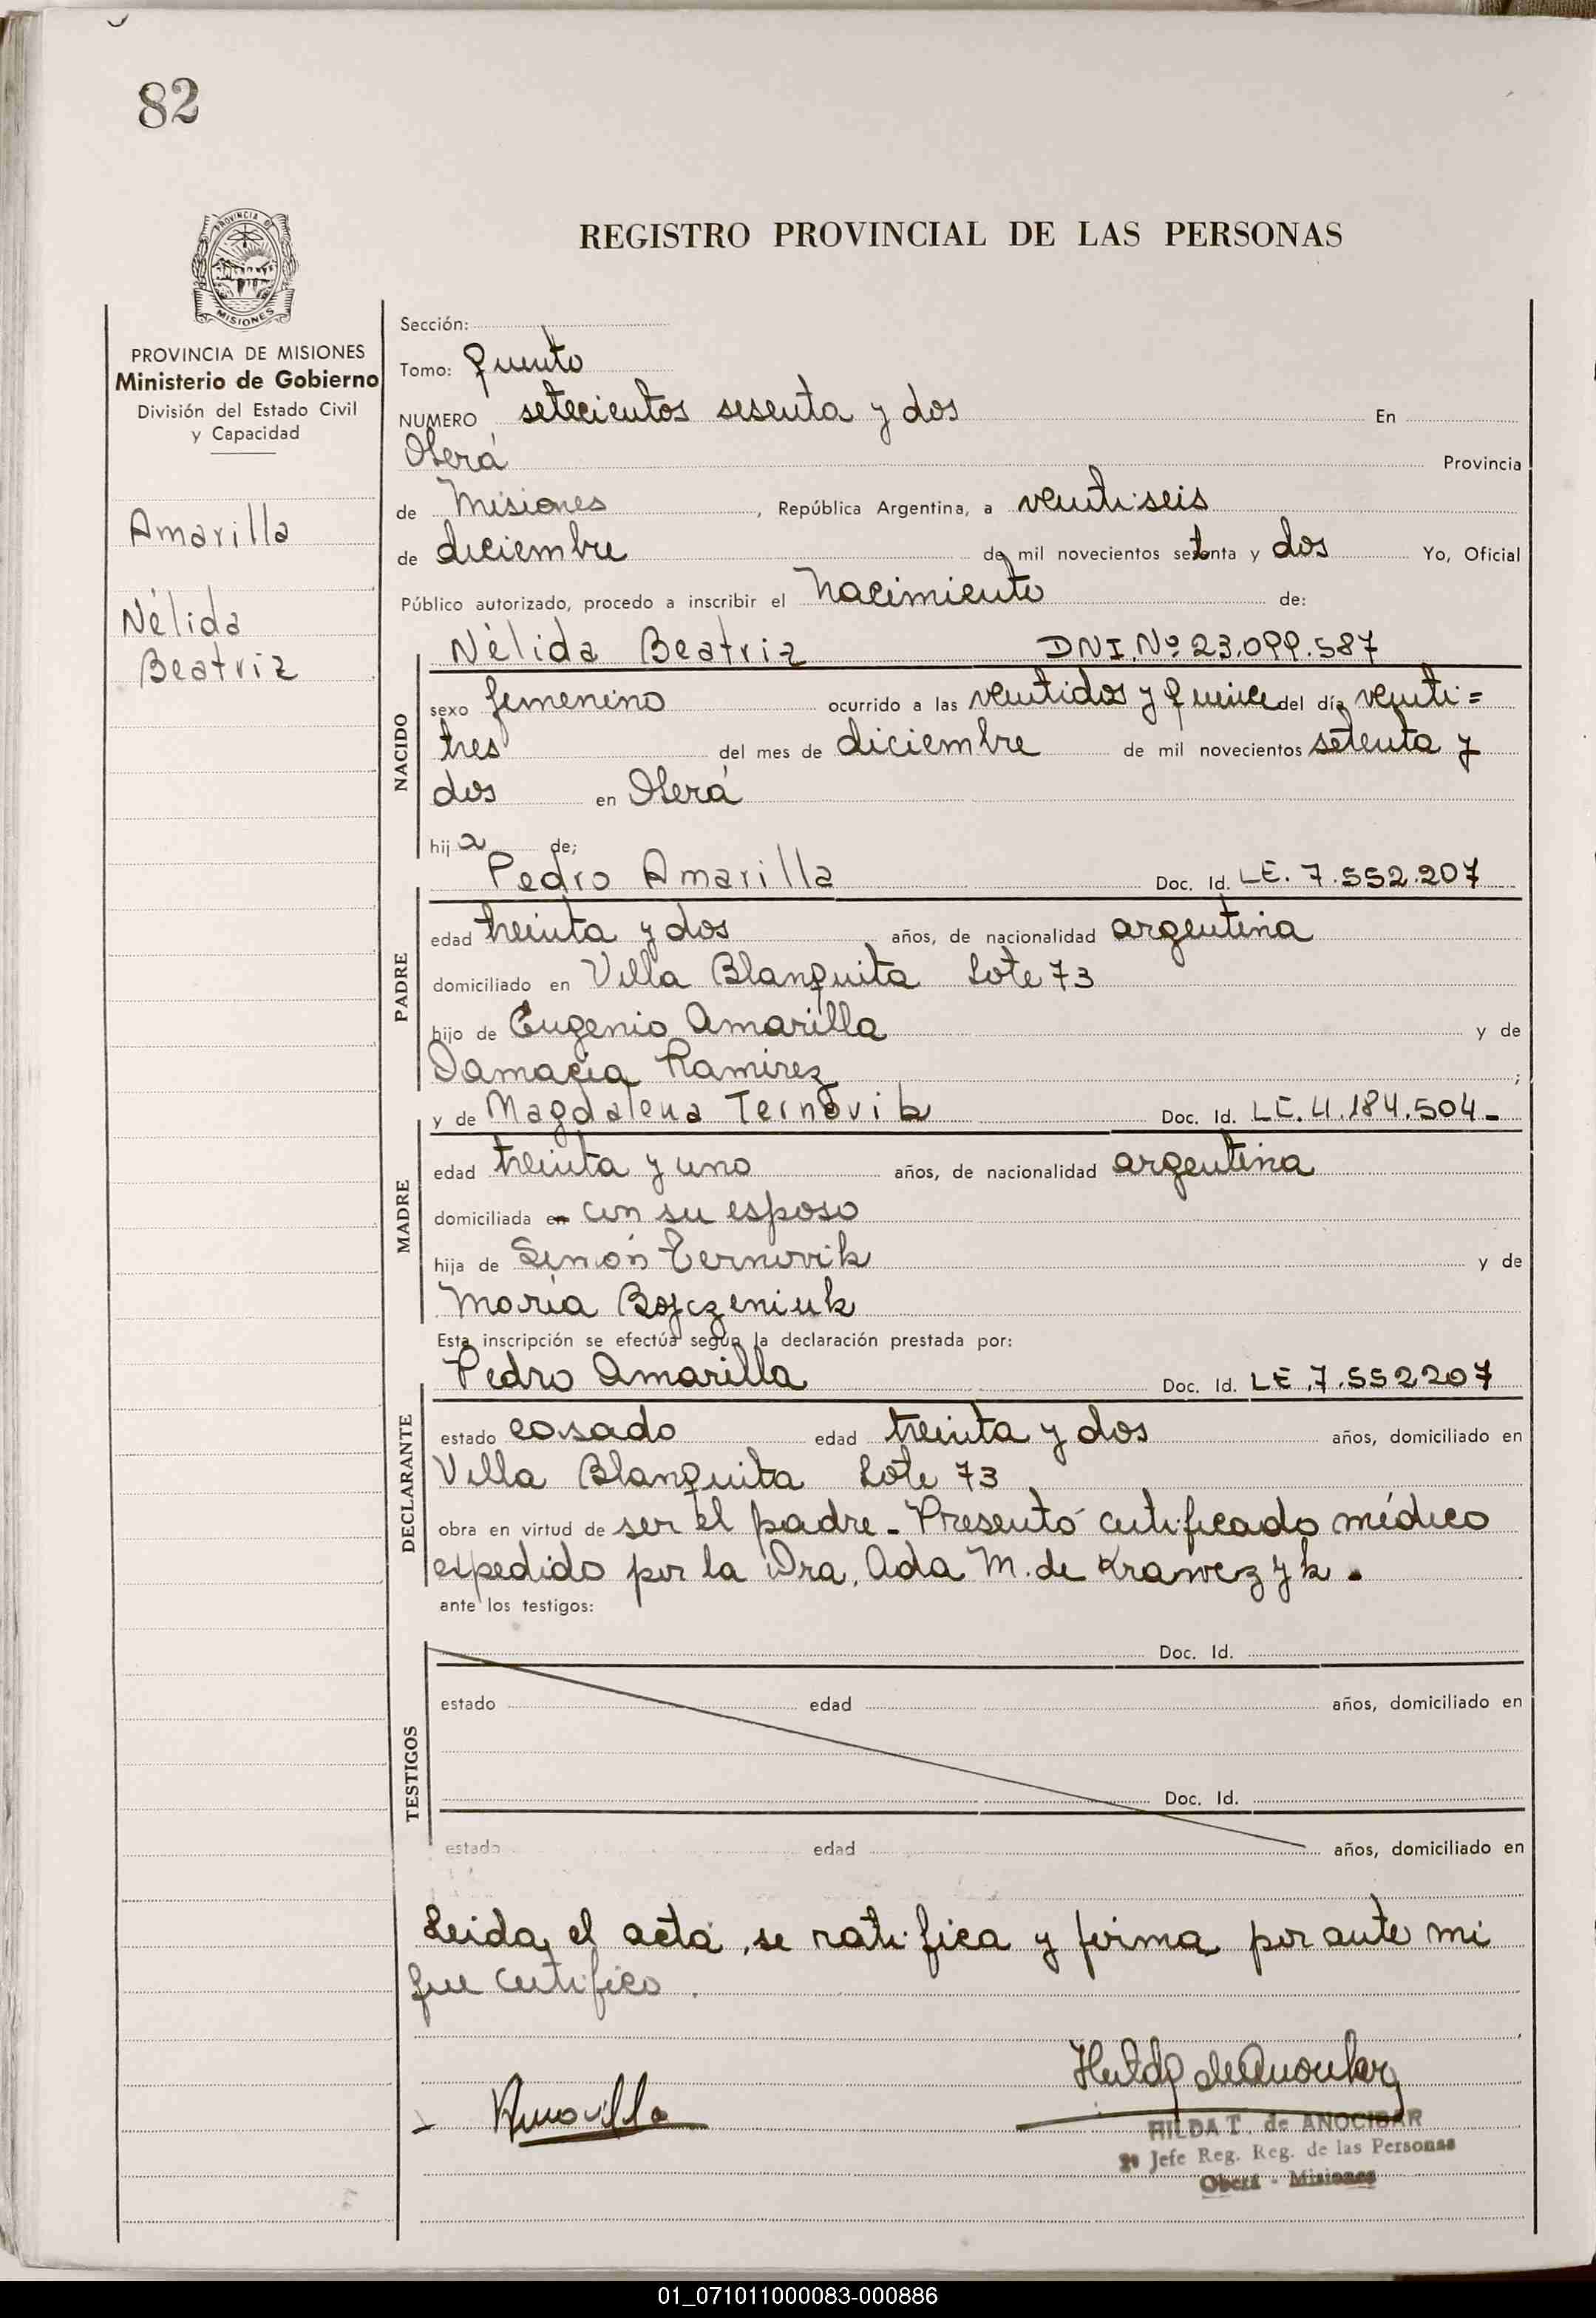 82
PROVINCIA DE
MISIONES
REGISTRO PROVINCIAL DE LAS PERSONAS
PROVINCIA DE MISIONES
Ministerio de Gobierno
División del Estado Civil
y Capacidad
Amarilla
Nélida
Beatriz
Sección:
Tomo: quinto
NUMERO setecientos sesenta y dos En
Oberá Provincia
de Misiones, República Argentina, a ventiseis
de diciembre de mil novecientos setenta y dos Yo, Oficial
Público autorizado, procedo a inscribir el nacimiento de:
Nélida Beatriz DNI. Nº 23.099.587
NACIDO
sexo femenino ocurrido a las ventidos y quince del día venti=
tres del mes de diciembre de mil novecientos setenta y
dos en Oberá
hija de;
Pedro Amarilla Doc. Id. LE. 7.552.207
PADRE
edad treinta y dos años, de nacionalidad argentina
domiciliado en Villa Blanquita Lote 73
hijo de Eugenio Amarilla y de
Damacia Ramirez ;
y de Magdalena Ternovik Doc. Id. LC. 4.184.504-
MADRE
edad treinta y uno años, de nacionalidad argentina
domiciliada en con su esposo
hija de Simón Ternovik y de
María Bojczeniuk
Esta inscripción se efectúa según la declaración prestada por:
Pedro Amarilla Doc. Id. LE.7.552207
DECLARANTE
estado casado edad treinta y dos años, domiciliado en
Villa Blanquita Lote 73
obra en virtud de ser el padre - Presentó certificado médico
expedido por la Dra. Ada M. de Krawczyk.
ante los testigos:
Doc. Id.
TESTIGOS
estado edad años, domiciliado en
Doc. Id.
estado edad años, domiciliado en
Leida el acta, se ratifica y firma por ante mi
que certifico.
Amarilla
Hilda de Anocibar
HILDA T. de ANOCIBAR
2º Jefe Reg. Reg. de las Personas
Oberá - Misiones
01_071011000083-000886